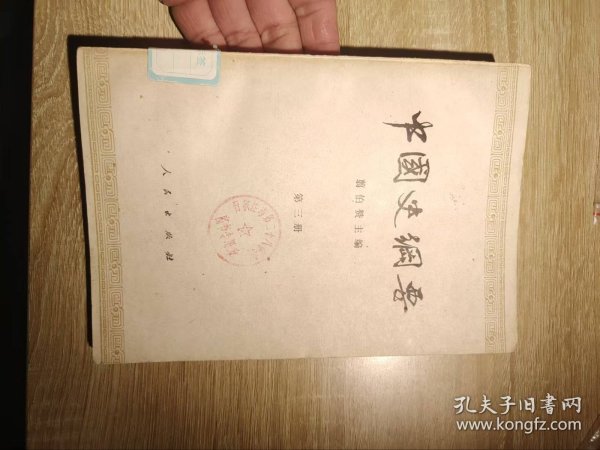 中國史綱要
翦伯赞主编
第三册
人民出版社
孔夫子旧書网
www.kongfz.com